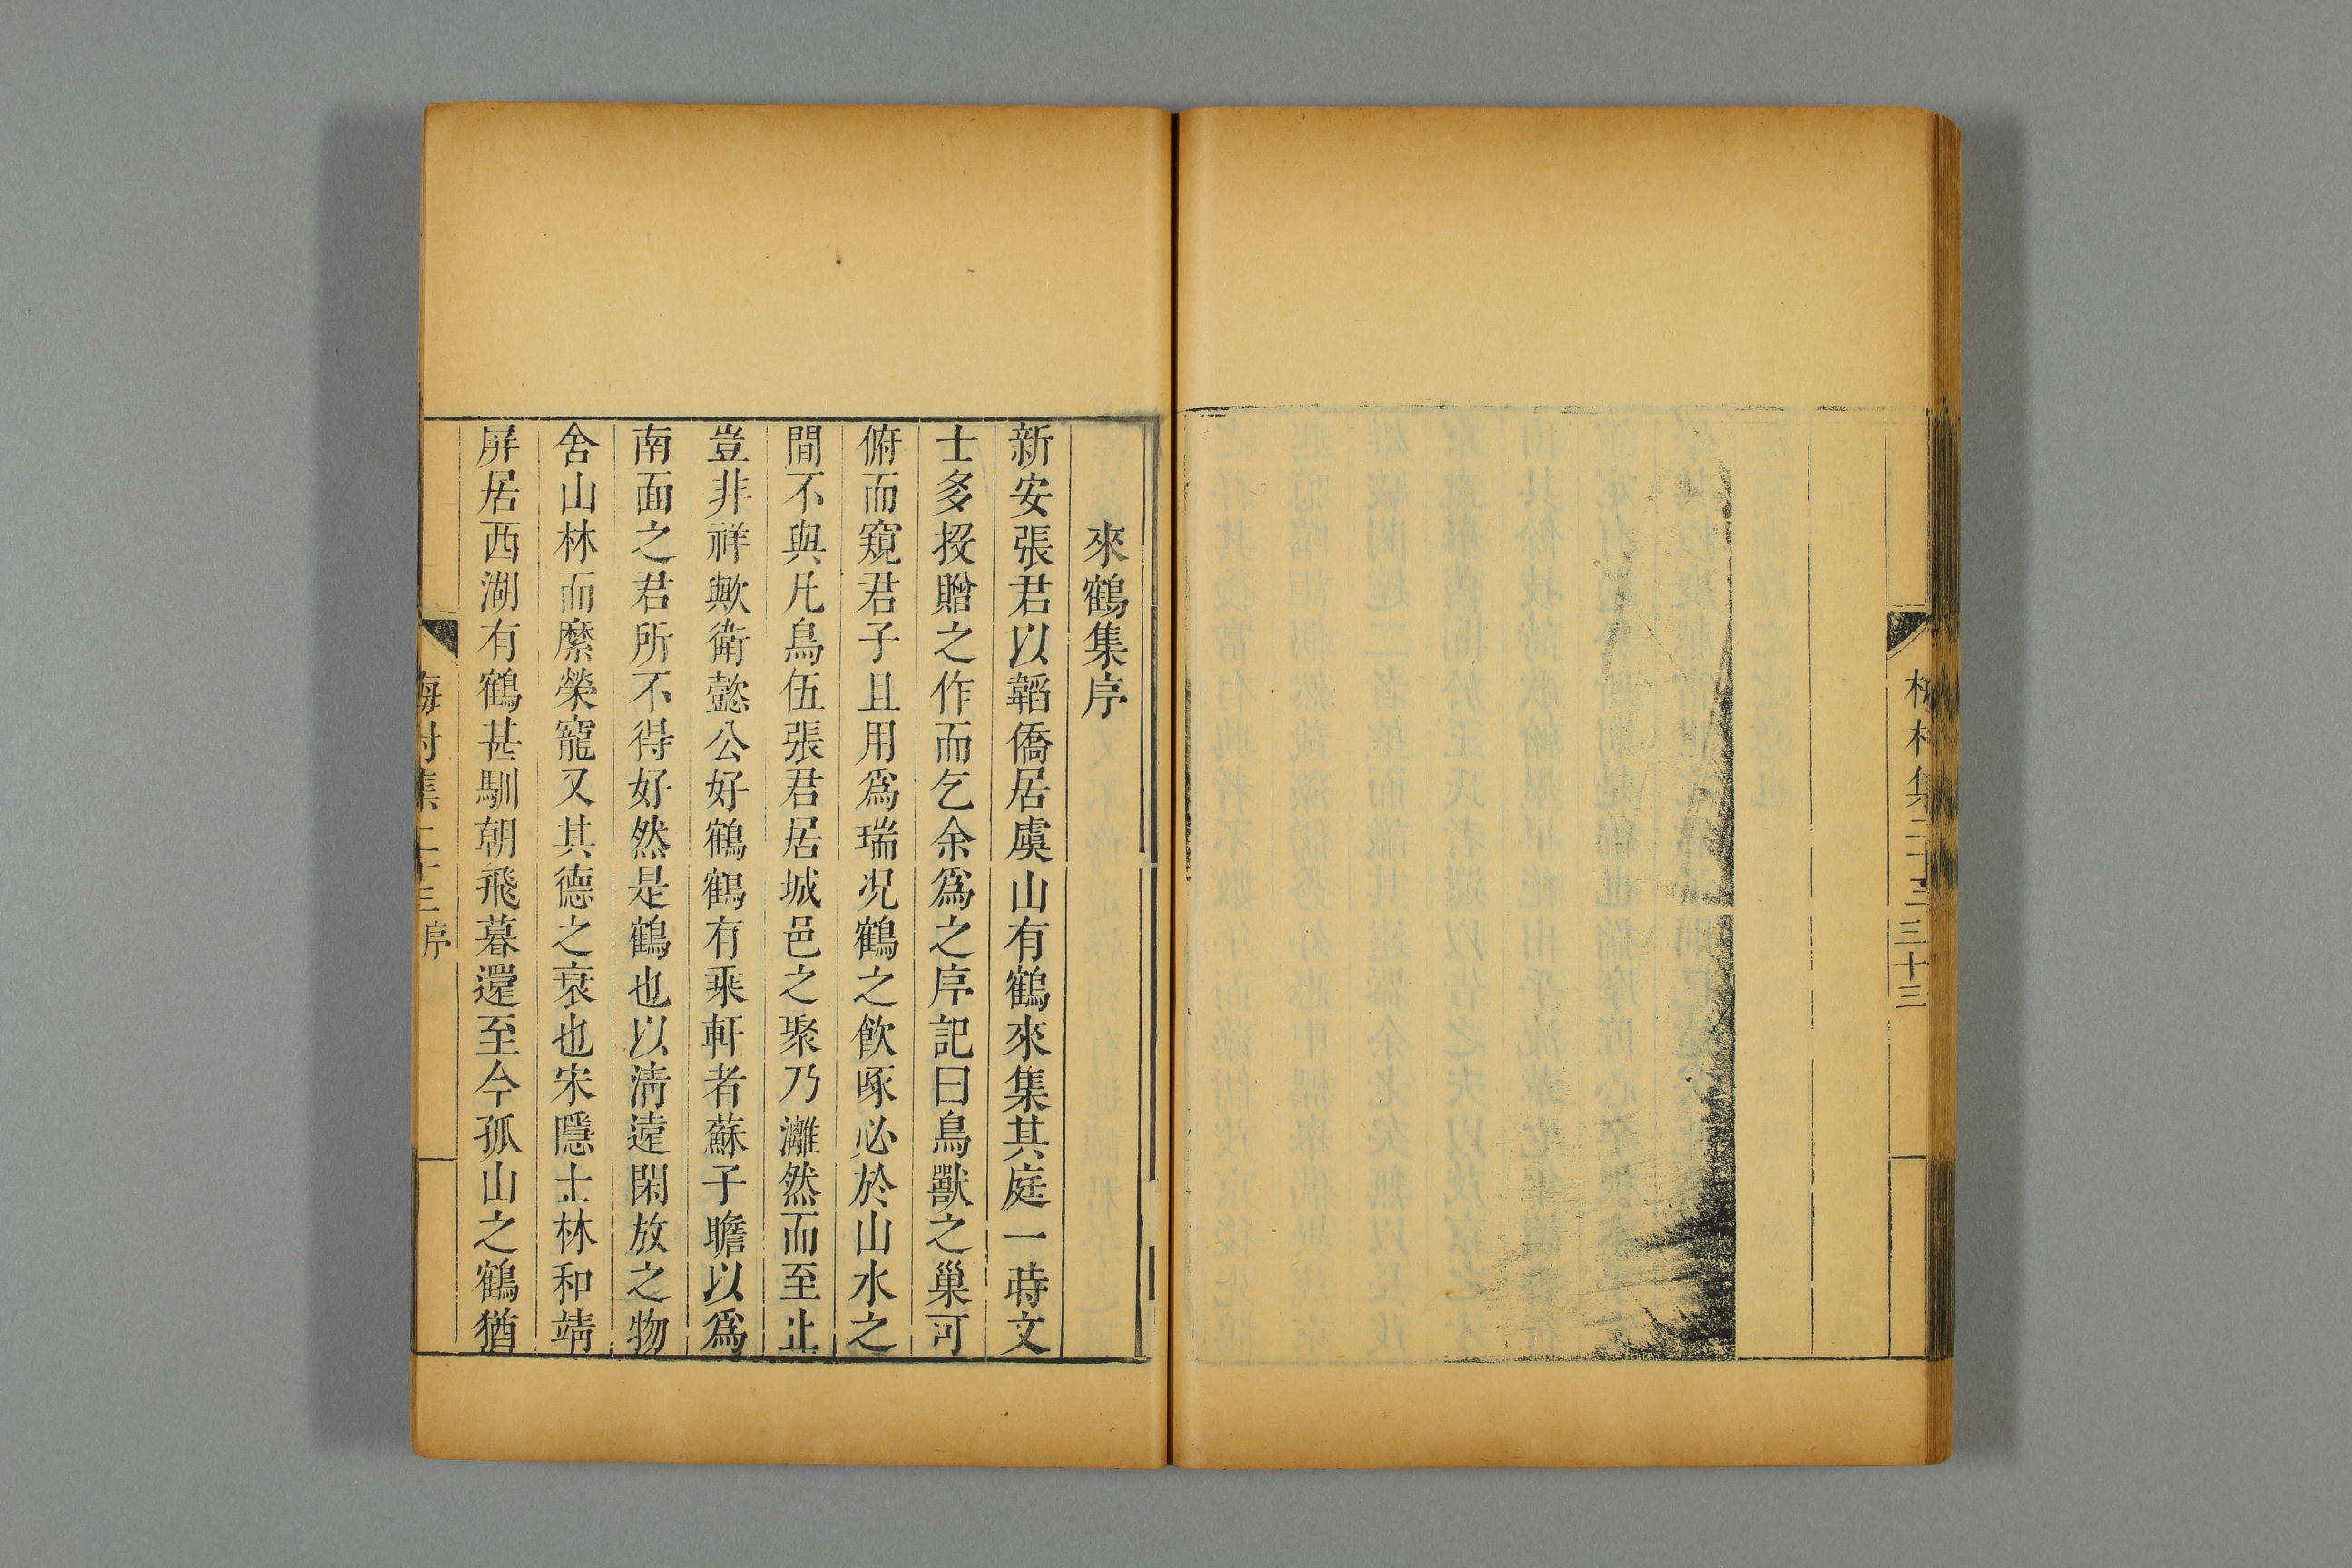 梅村集二十三
三十三
來鶴集序
新安張君以韜僑居虞山有鶴來集其庭一時文
士多投贈之作而乞余爲之序記曰鳥獸之巢可
俯而窺君子且用爲瑞况鶴之飲啄必於山水之
間不與凡鳥伍張君居城邑之聚乃灕然而至止
豈非祥歟衛懿公好鶴鶴有乘軒者蘇子瞻以爲
南面之君所不得好然是鶴也以淸遠閑放之物
舍山林而縻榮寵又其德之衰也宋隱士林和靖
屏居西湖有鶴甚馴朝飛暮還至今孤山之鶴猶
梅村集二十三序